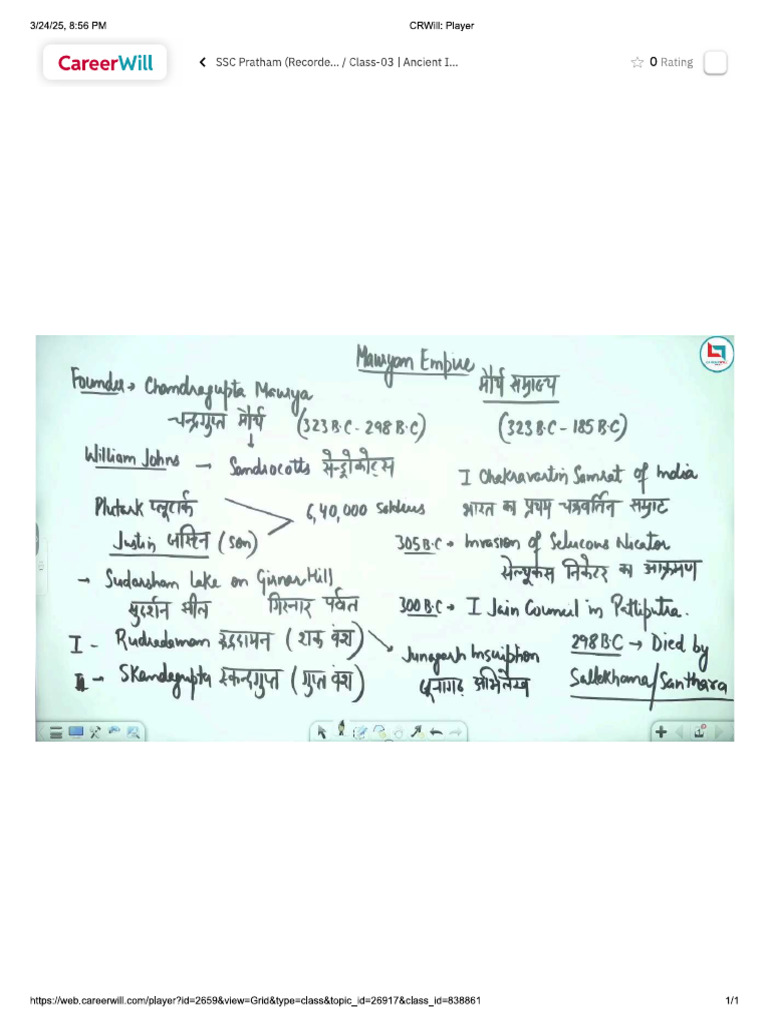 3/24/25, 8:56 PM CRWill: Player
CareerWill < SSC Pratham (Recorde... / Class-03 | Ancient I... ☆ 0 Rating
Mauryan Empire मौर्य सम्राज्य
Founder → Chandragupta Maurya
चन्द्रगुप्त मौर्य (323 B.C - 298 B.C) (323 B.C - 185 B.C)
William Johns → Sandrocotts सेन्ड्रोकोट्स
I Chakravartin Samrat of India
Plutark प्लूटार्क 6,40,000 Soldiers भारत का प्रथम चक्रवर्तिन सम्राट
Justin जस्टिन (Son) 305 B.C → Invasion of Selucous Nicator
सेल्यूकस निकेटर का आक्रमण
→ Sudarsham Lake on Girnar Hill
सुदर्शन झील गिरनार पर्वत 300 B.C → I Jain Council in Patliputra.
I - Rudradaman रुद्रदामन (शक वंश) Junagarh Inscription 298 B.C → Died by
II → Skandagupta स्कन्दगुप्त (गुप्त वंश) जूनागढ़ अभिलेख Sallekhama/Santhara
https://web.careerwill.com/player?id=2659&view=Grid&type=class&topic_id=26917&class_id=838861 1/1